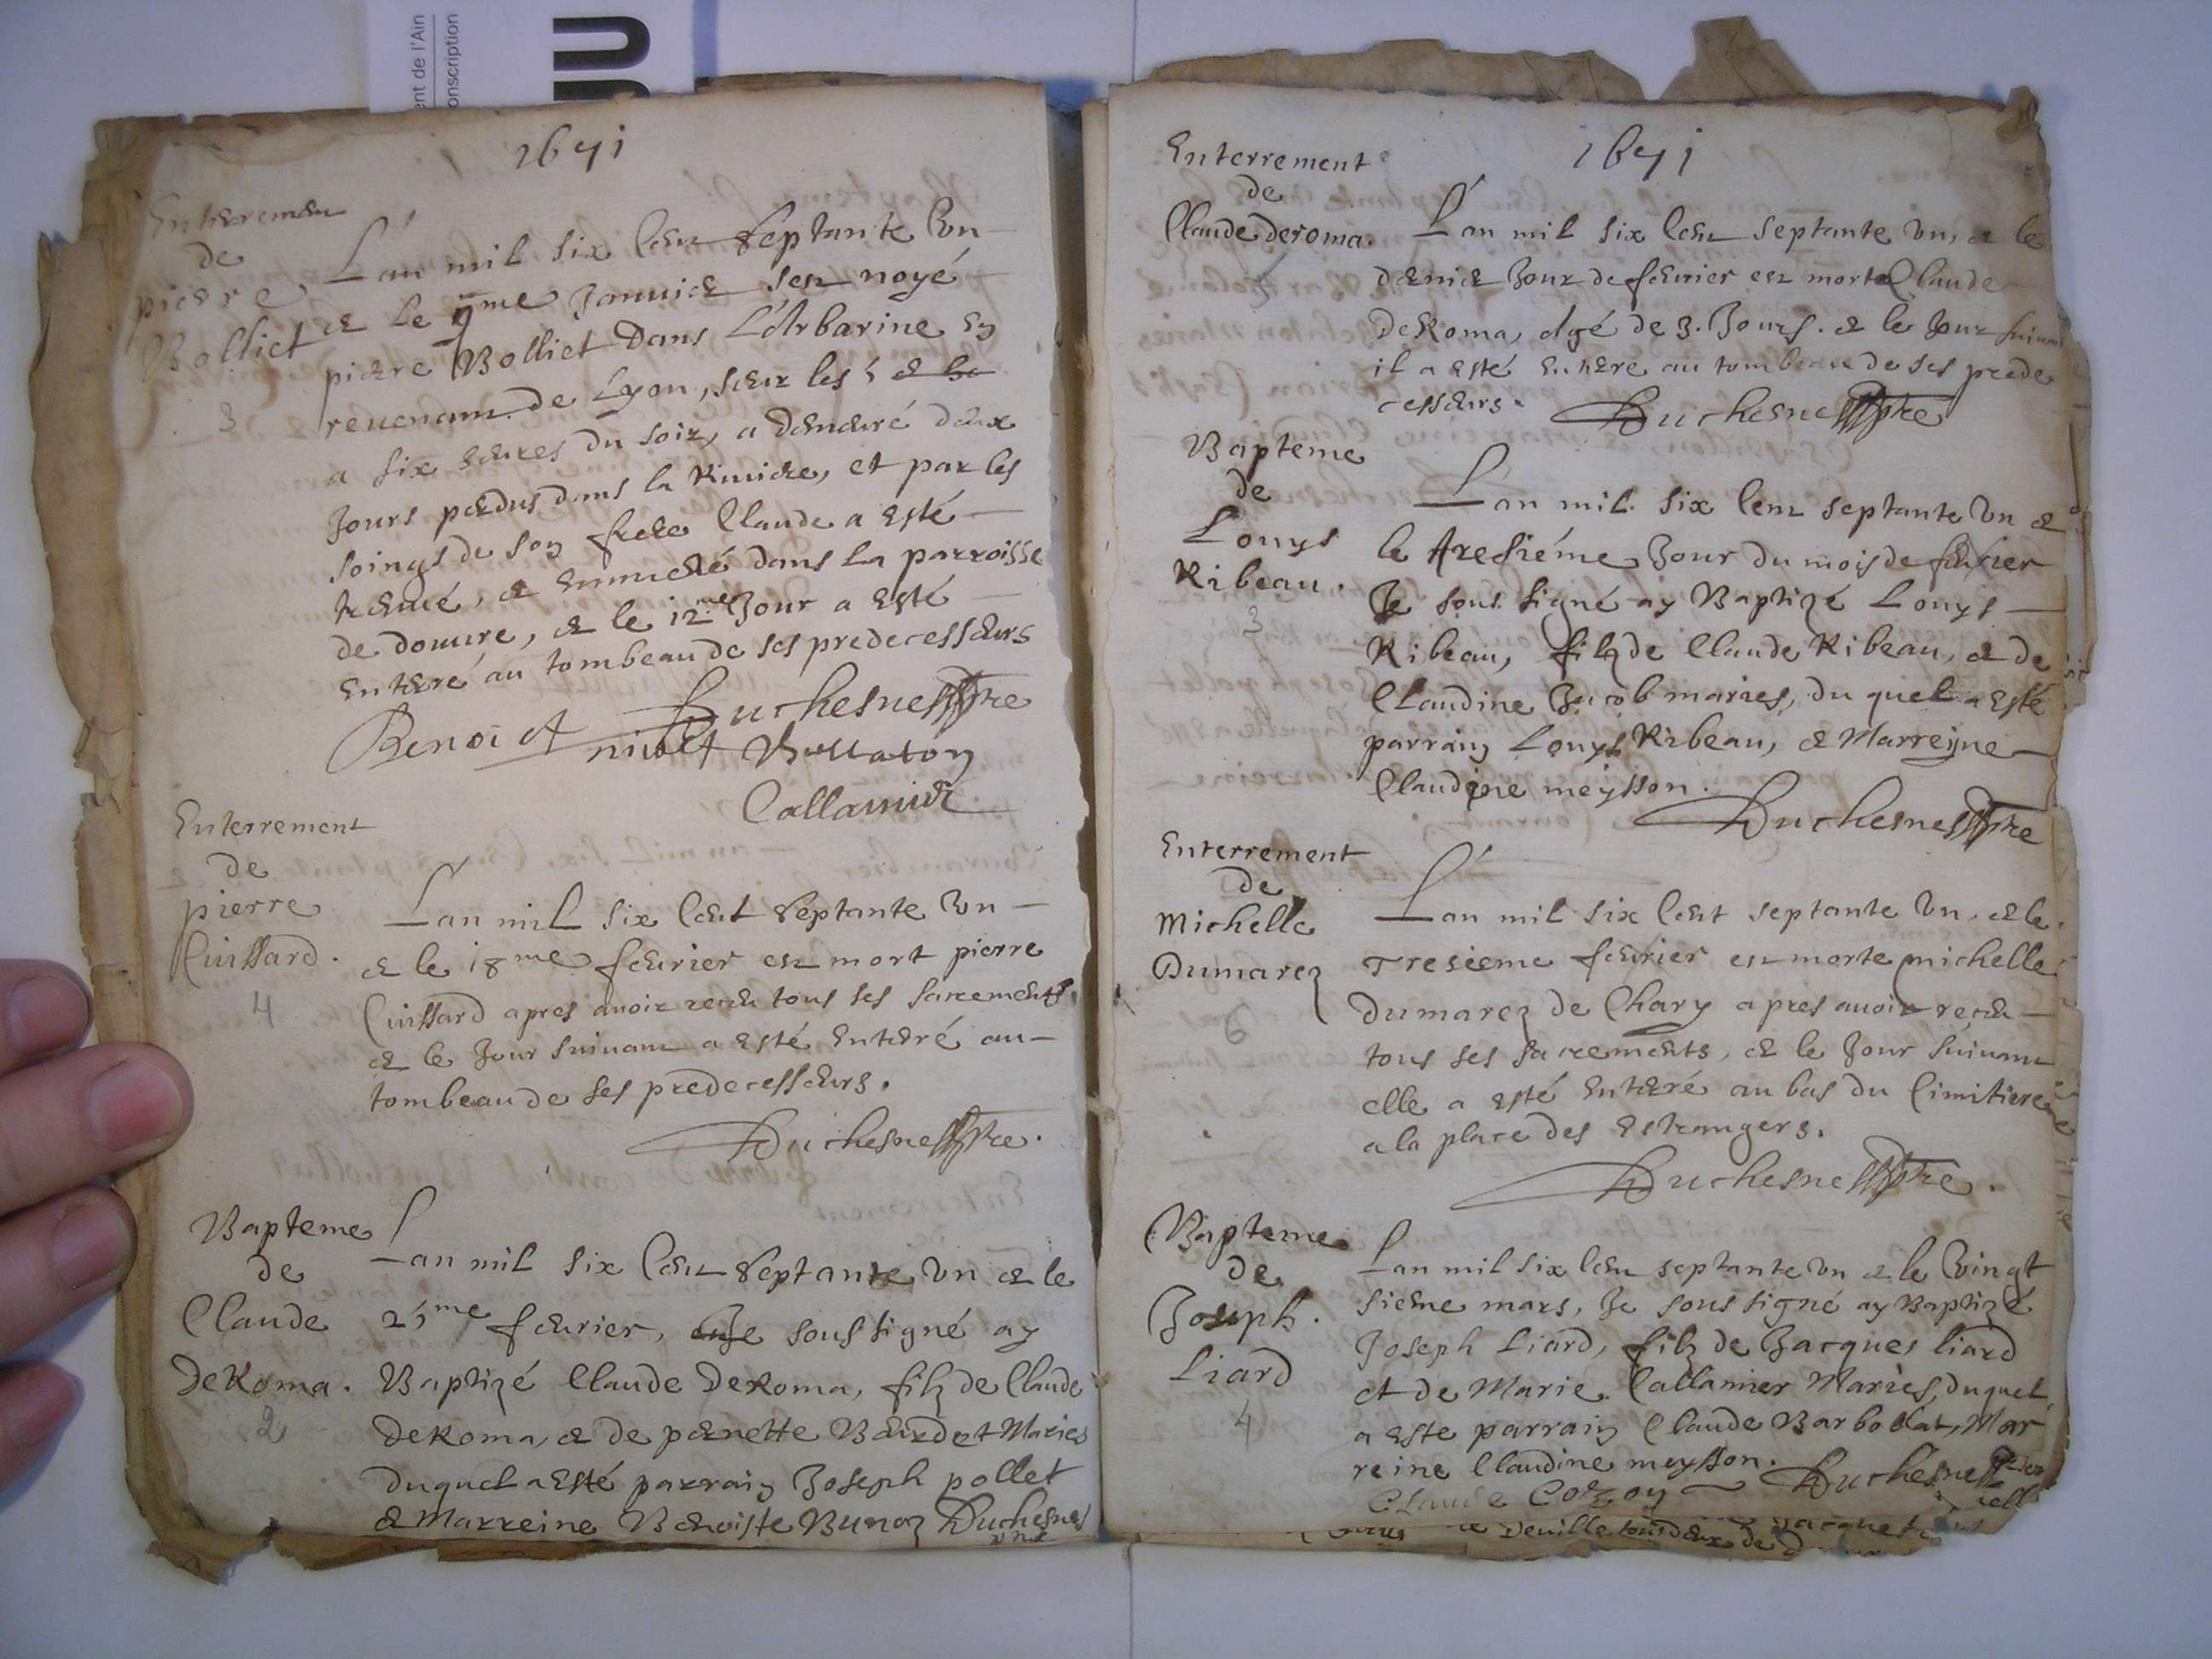 ent de l'Ain
onscription
1671
Enterremen
de
pierre
Bolliet
3
L'an mil six Cent septante Un
et le 9me Januier s'est noyé
pierre Bolliet dans L'Arbarine en
reuenant de Lyon, seur les 5
a six heures du soir, a demeuré deux
Jours perdus dans la Riuiere, et par les
soings de son frere Claude a esté
treuué, et dans la parroisse
de douure, et le 12me Jour a esté
enterré au tombeau de ses predecesseurs
Duchesne ptre
Benoict niuolet Bullaton
Callamier
Enterrement
de
pierre
Cuissard.
4
L'an mil six Cent septante Un
et le 18me feurier est mort pierre
Cuissard apres auoir receu tous ses sacrements
et le Jour suiuant a esté enterré au
tombeau de ses predecesseurs.
Duchesne ptre.
Bapteme
de
Claude
DeRoma.
2
L'an mil six Cent septante Un et le
25me feurier, Je soussigné ay
Baptizé Claude DeRoma, filz de Claude
DeRoma, et de pernette Beurdet Maries
duquel a esté parrain Joseph pollet
et Marreine Benoiste Bunoz Duchesne
1671
Enterrement
de
Claude deroma.
L'an mil six Cent septante Un, et le
dernier Jour de feurier est mort Claude
DeRoma, Agé de 3. Jours. et le Jour suiuant
il a esté enterre au tombeau de ses prede
cesseurs. Duchesne ptre
Bapteme
de
Louys
Ribeau.
3
L'an mil six Cent septante Un et
le tresiéme Jour du mois de feurier
Je sous signé ay Baptizé Louys
Ribeau, filz de Claude Ribeau, et de
Claudine Jacob maries, du quel a esté
parrain Louys Ribeau, et Marreyne
Claudine meysson.
Duchesne ptre
Enterrement
de
Michelle
Dumarez
L'an mil six Cent septante Un, et le
Tresieme feurier est morte michelle
Dumarez de Chary apres auoir receu
tous ses sacrements, et le Jour suiuant
elle a esté enterré au bas du Cimitiere
a la place des estrangers.
Duchesne ptre.
Bapteme
de
Joseph.
Liard
4
L'an mil six Cent septante Un et le Vingt
sieme mars, Je sous signé ay Baptizé
Joseph Liard, filz de Jacques liard
et de Marie Callamier Maries, duquel
a este parrain Claude Barbollat, Mar
reine Claudine meysson. Duchesne
Claude Cozon
de Deuille tous deux de